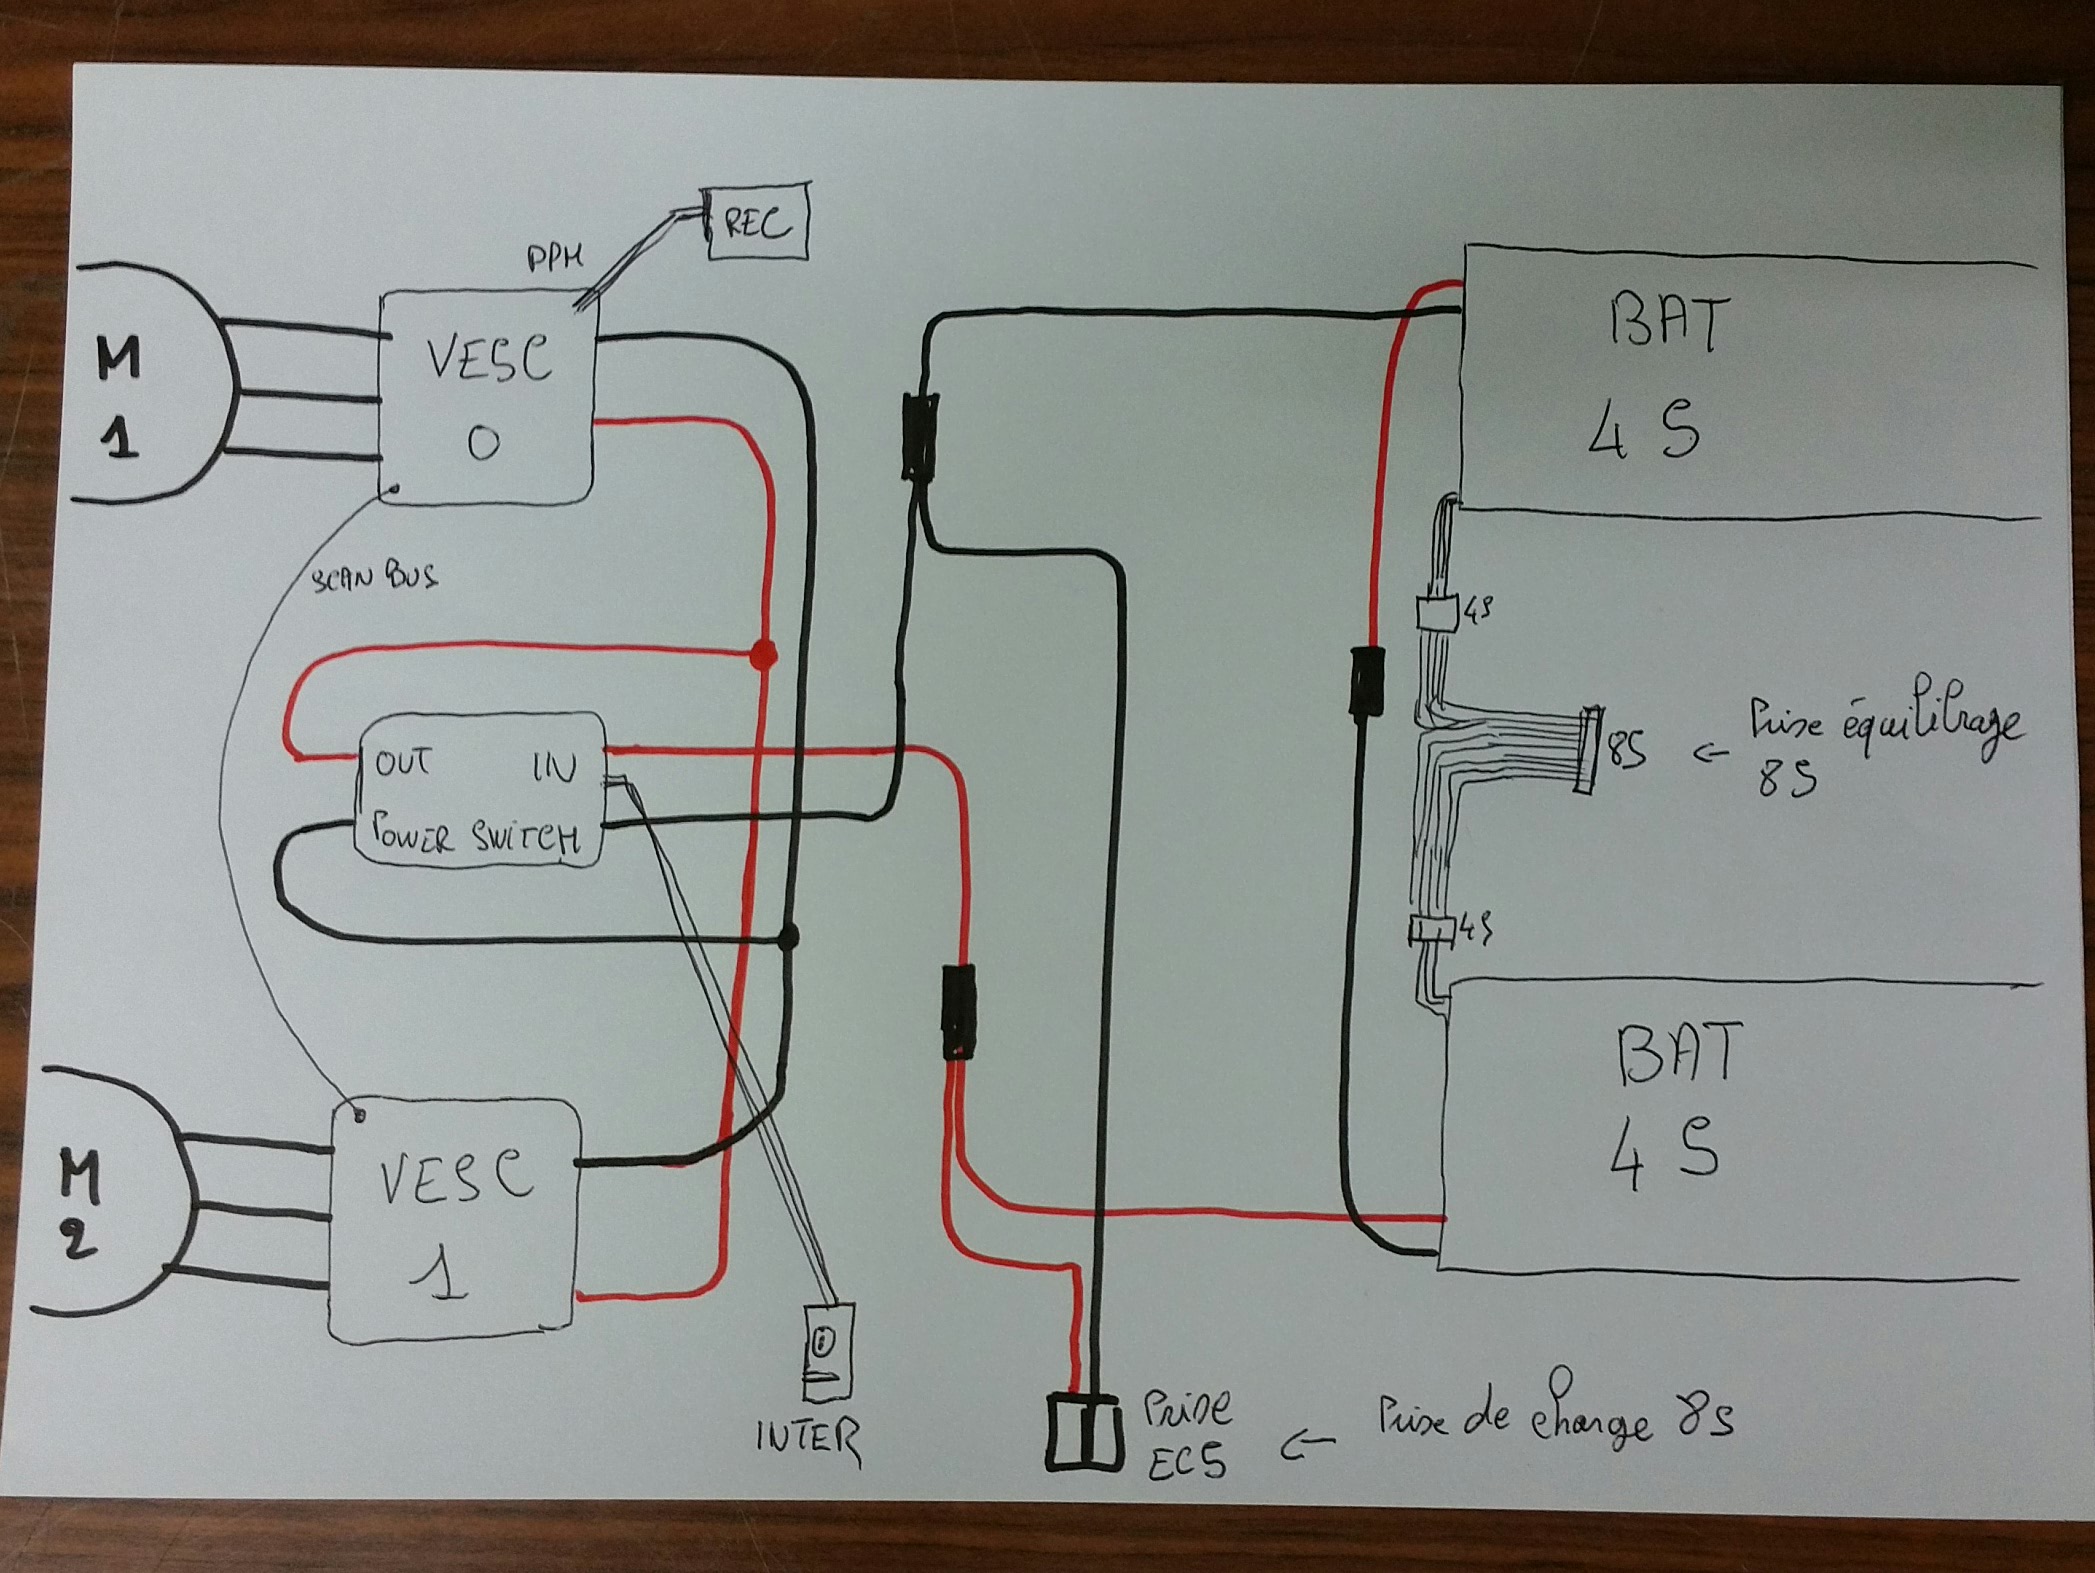 REC
PPM
M
1
VESC
0
BAT
4 S
SCAN BUS
4S
OUT IN
POWER SWITCH
8S ← Prise équilibrage
8S
4S
BAT
4 S
M
2
VESC
1
INTER
Prise
EC5 ← Prise de charge 8S